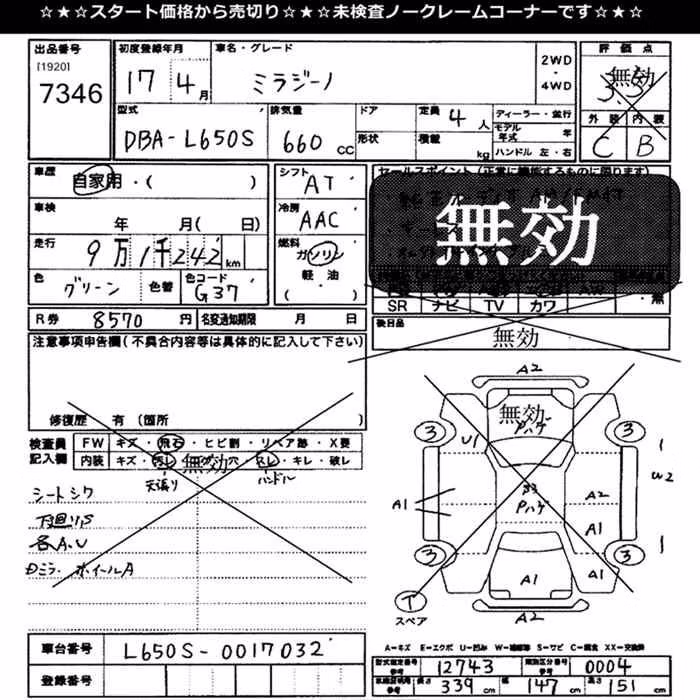 ☆★☆スタート価格から売切り☆★☆未検査ノークレームコーナーです☆★☆
出品番号
[1920]
7346
初度登録年月
17 4月
車名・グレード
ミラジーノ
2WD
・
4WD
評価点
無効
3.5
外装 内装
C B
型式
DBA-L650S
排気量
660 CC
ドア
形状
定員 4 人
積載 kg
ディーラー・並行
モデル年式 年
ハンドル 左・右
車歴
自家用・( )
車検
年 月( 日)
走行
9万1千242 km
色
グリーン
色替
色コード
G37
シフト
AT
冷房
AAC
燃料
ガソリン
軽・油
( )
セールスポイント(正常に機能するものに限ります)
無効
SR ナビ TV カワ ・無
R券 8570 円
名変通知期限 月 日
後日品
無効
注意事項申告欄(不具合内容等は具体的に記入して下さい)
修復歴 有(箇所 )
検査員記入欄
FW キズ・飛石・ヒビ割・リペア跡・X要
内装 キズ・汚レ・コゲ穴・スレ・キレ・破レ
無効
天張り ハンドル
シートシワ
下廻りS
各A.U
Dミラ・ホイールA
A2
無効
Pハゲ
3 3
U1
1
W2
1
A1
Pハゲ
A2
A1
3 3
A1
A1
T
スペア
A2
車台番号
L650S-0017032
登録番号
A=キズ E=エクボ U=凹み W=補修跡 S=サビ C=腐食 XX=交換済
型式指定番号 参考 12743
類別区分番号 参考 0004
車検証明 参考 長さ 339 cm 幅 147 cm 高さ 151 cm